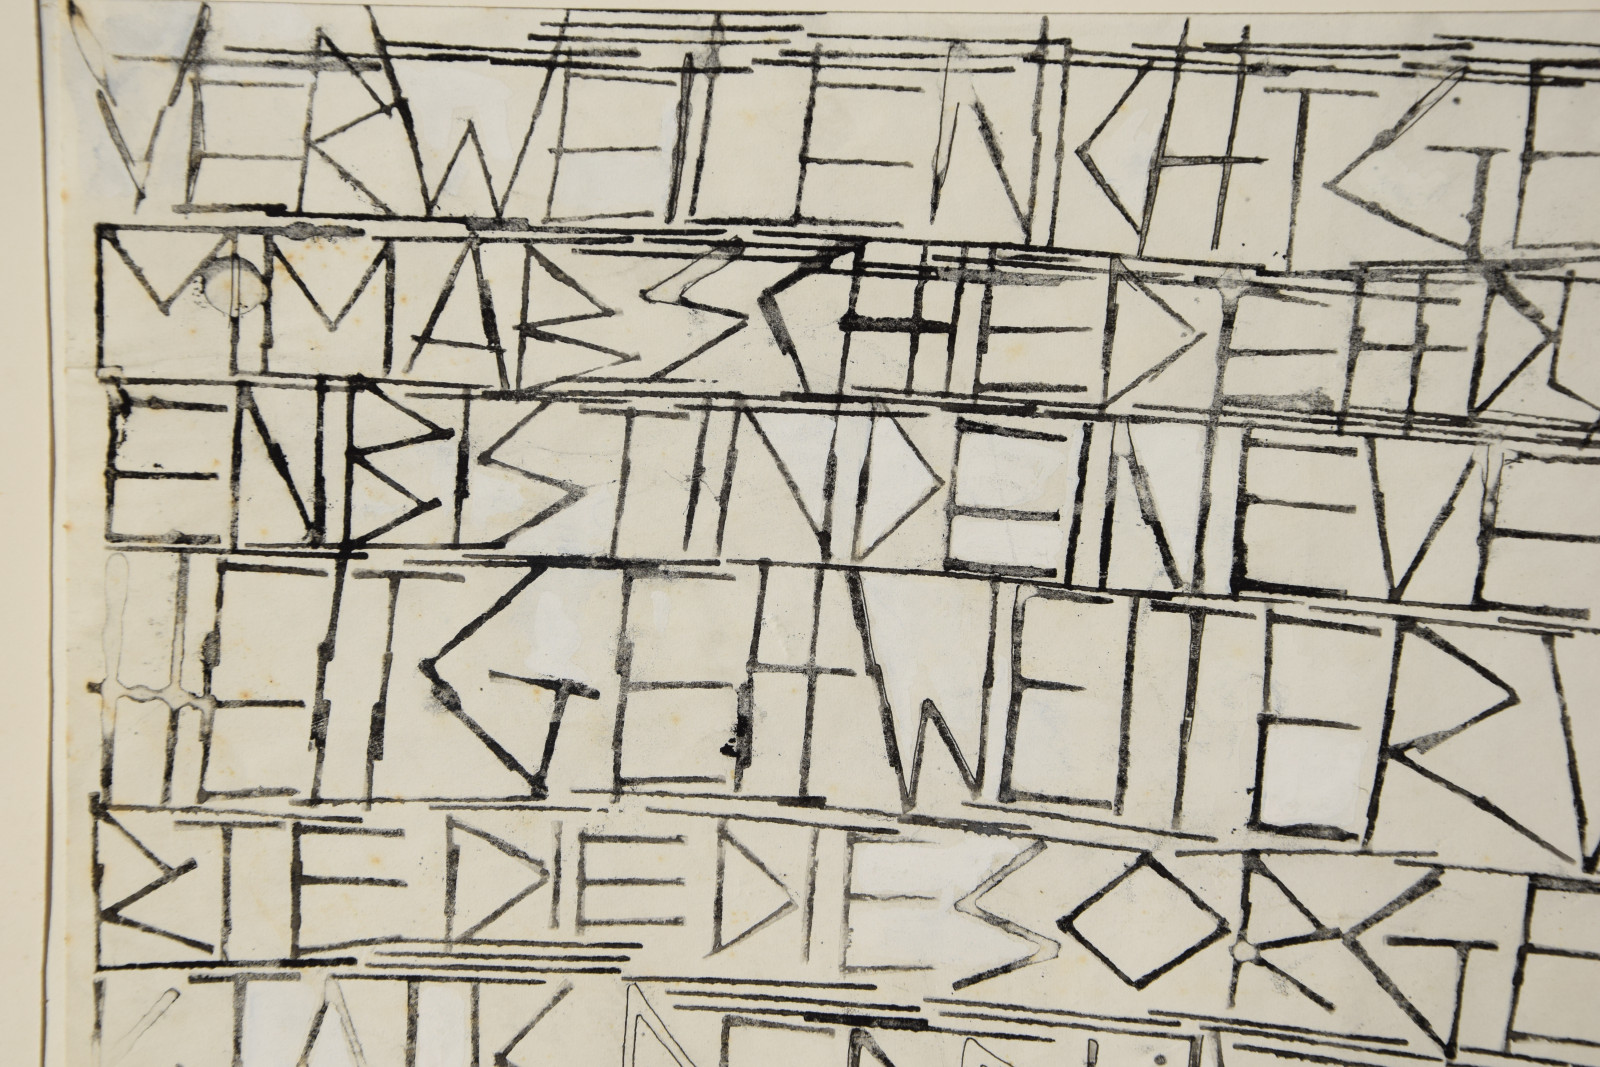 VERWEILENICHTGE
MMABSCHIEDEHD
ENBISTINDEINEVE
HEITGEHWEITERV
RTEDIEDIESORGE